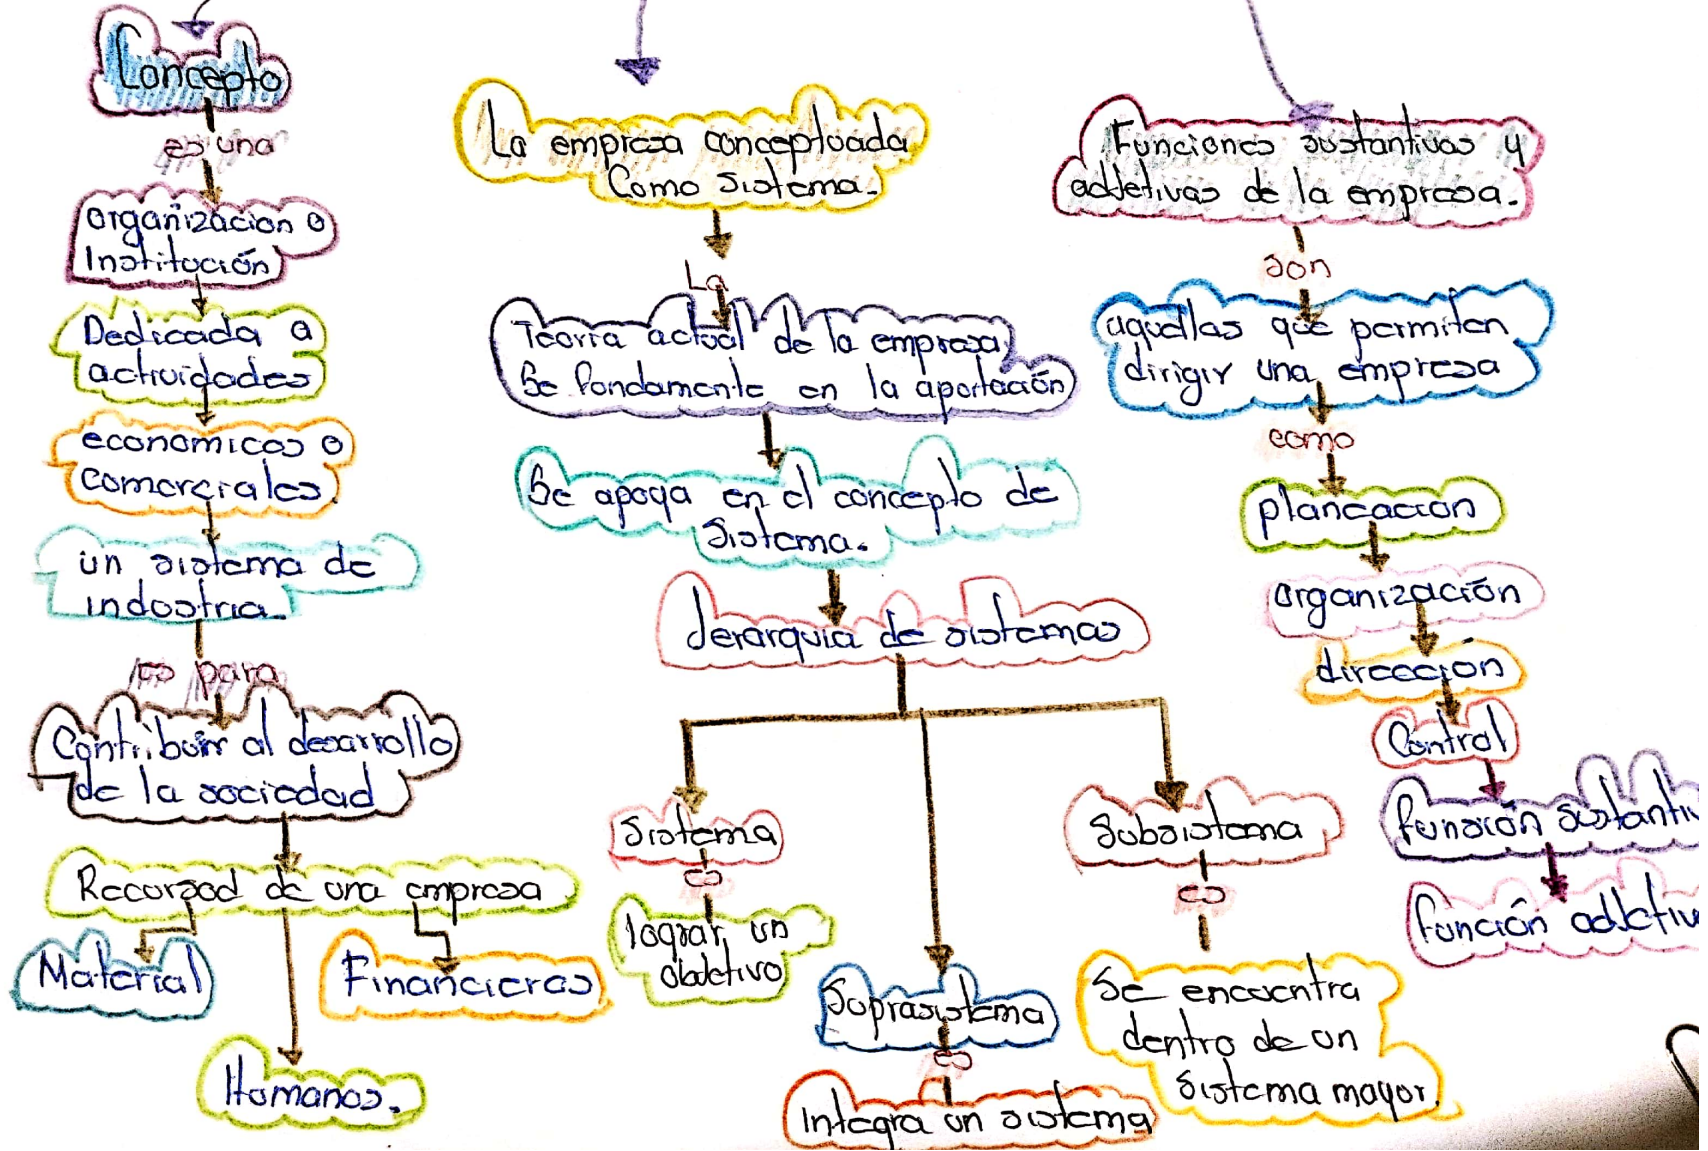 Concepto
es una
organización o
Institución
Dedicada a
actividades
economicas o
comerciales.
un sistema de
industria.
es para
Contribuir al desarrollo
de la sociedad
Recursod de una empresa
Material
Financieras
Humanos.
La empresa conceptuada
Como Sistema.
La
Teoria actual de la empresa
Se fundamente en la aportación
Se apoya en el concepto de
Sistema.
Jerarquia de sistemas
Sistema
es
lograr un
objetivo
Suprasistema
es
Integra un sistema
Subsistema
es
Se encuentra
dentro de un
Sistema mayor.
Funciones sustantivas y
adjetivas de la empresa.
son
aquellas que permiten
dirigir una empresa
como
planeacion
organización
direccion
Control
función sustantiv
función adjetiv